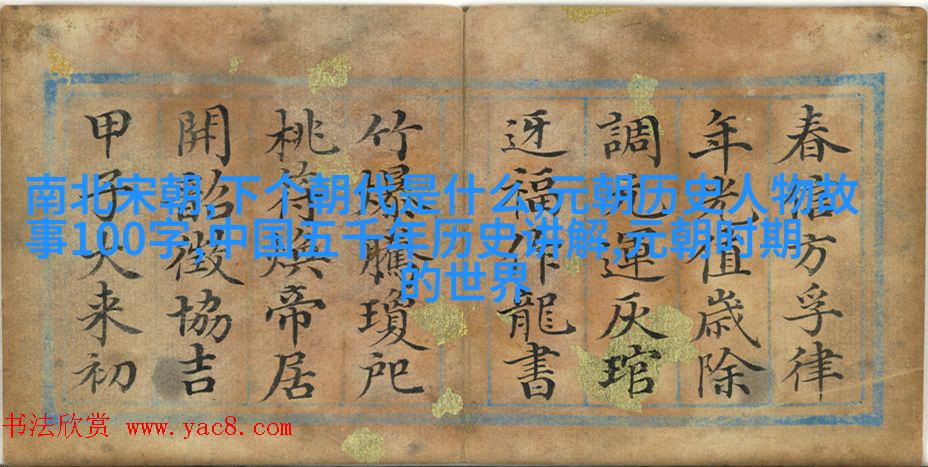 南北宋朝,下个朝代是什么,元朝历史人物故
事100字,中国五千年历史讲解,元朝时期
的世界
春方孚律
年光值歲除
調元運灰琯
迓福作龍書
竹爆騰瓊
桃符煥帝居
開韶徵協吉
甲子大来初
书法欣赏 www.yac8.com